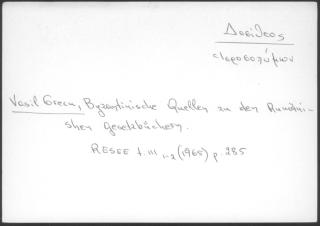 Δοσίθεος
Ἱεροσολύμων
Vasil Grecu, Byzantinische Quellen zu den Rumäni-
shen Gesetzbüchern.
RESEE t. III 1-2 (1965) p. 285